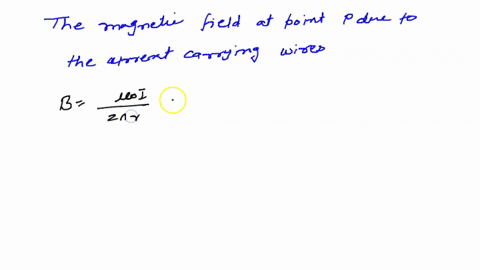 The magnetic field at point P due to
the current carrying wires
B = μ₀I / 2πr